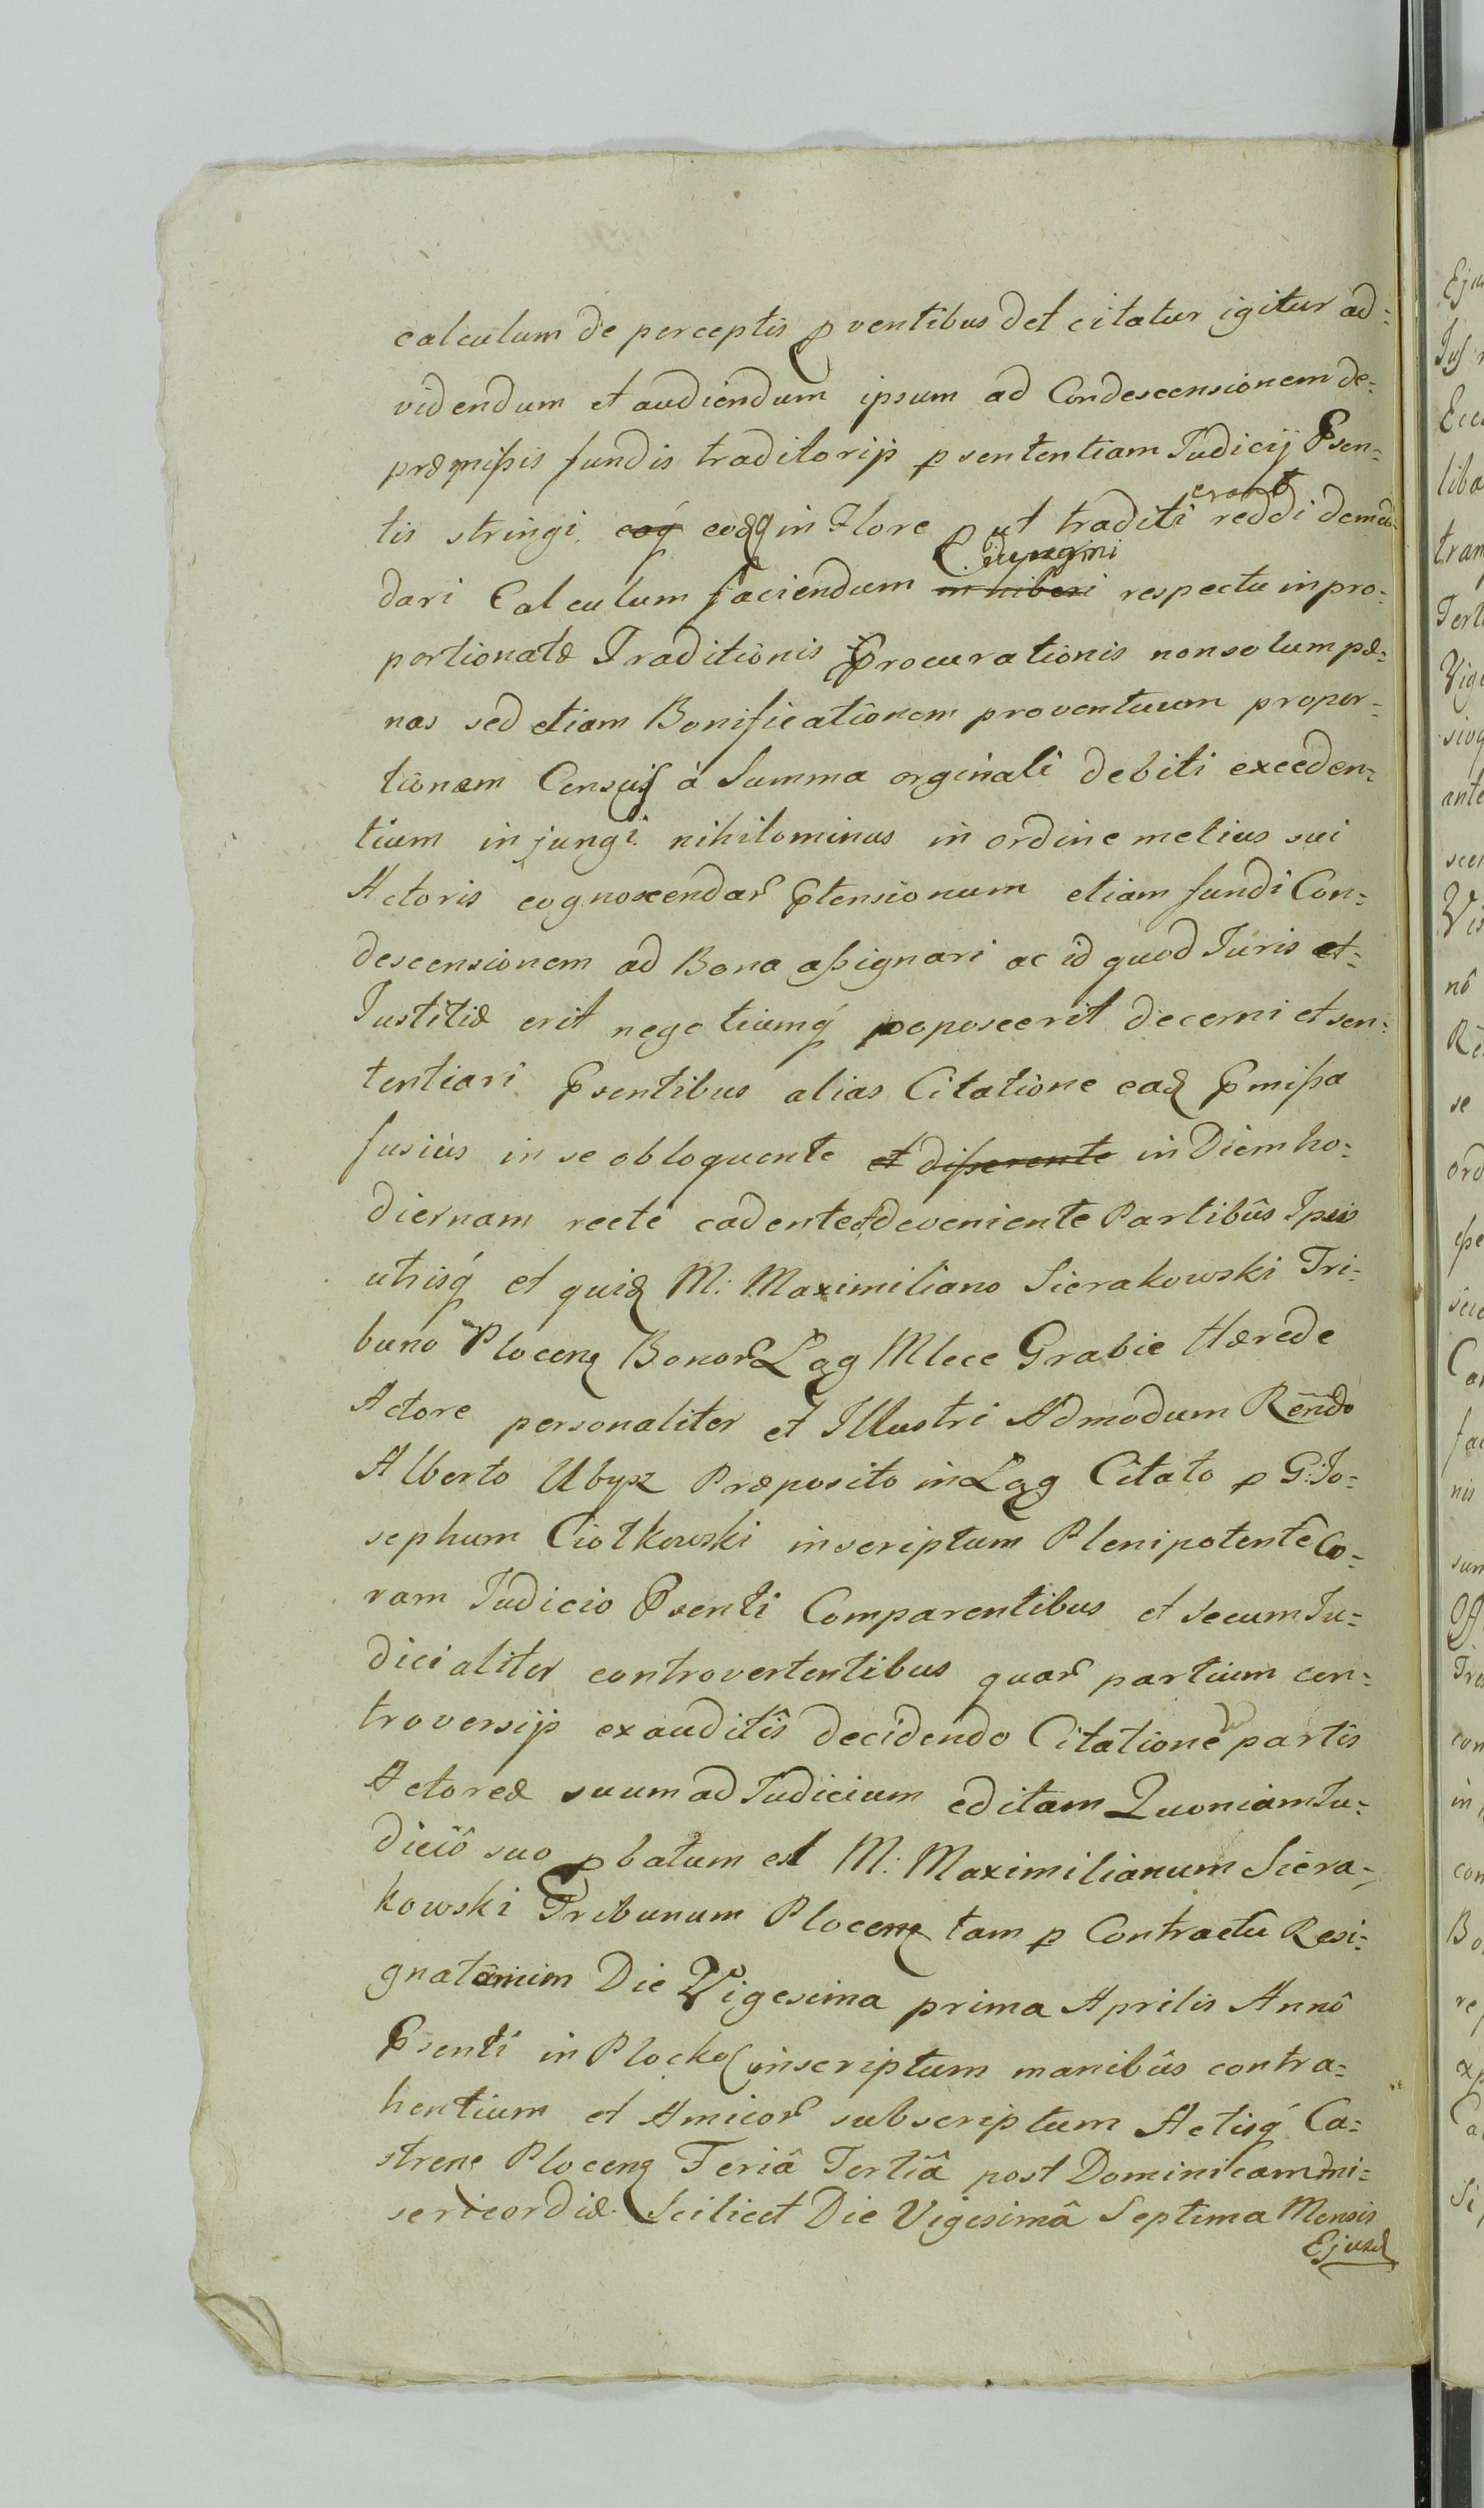 calculum de perceptis pventibus det citatur igitur ad=
videndum et audiendum ipsum ad Condescensionem de=
præmißis fundis traditorijs p sententiam Judicij Psen=
tis stringi. eoq́ eosq in Flore put traditi erant reddi deman=
dari Calculum faciendum injungi respectu inpro=
portionatæ Traditionis Procurationis nonsolum pæ=
nas sed etiam Bonificationem proventuum propor=
tionem Censûs à Summa orginali debiti exceden=
tium injungi. nihilominus in ordine melius sui
Actoris cognoscendar Ptensionum etiam fundi Con=
descensionem ad Bona aßignari ac id quod Juris et=
Justitiæ erit negotiumq́ poposcerit decerni et sen=
tentiari Psentibus alias Citatione ead Pmißa
fusiùs in se obloquente et dißerente in Diem ho=
diernam rectè cadente et deveniente Partibûs Ipsis
utrisq́ et quid M: Maximiliano Sierakowski Tri=
buno Plocen Bonor Łąg Mlece Grabie Hærede
Actore personaliter et Illustri Admodum Rendo
Alberto Ubysz Præposito in Łąg Citato p G: Jo=
sephum Ciołkowski inscriptum Plenipotente Co=
ram Judicio Psenti Comparentibus et secum Ju=
dicialiter controvertentibus quar partium con=
troversijs exauditîs decidendo Citatione partis
Actoreæ suum ad Judicium editam Quoniam Ju=
diciô suo pbatum est M: Maximilianum Siera=
kowski Tribunum Plocen tam p Contractu Resi=
gnatorium Die Vigesima prima Aprilis Annô
Psenti in Plocko inscriptum manibûs contra=
hentium et Amicor subscriptum Actisq́ Ca=
stren Plocen Feriâ Tertiâ post Dominicam mi=
sericordiæ Scilicet Die Vigesimâ Septima Mensis
Ejusd